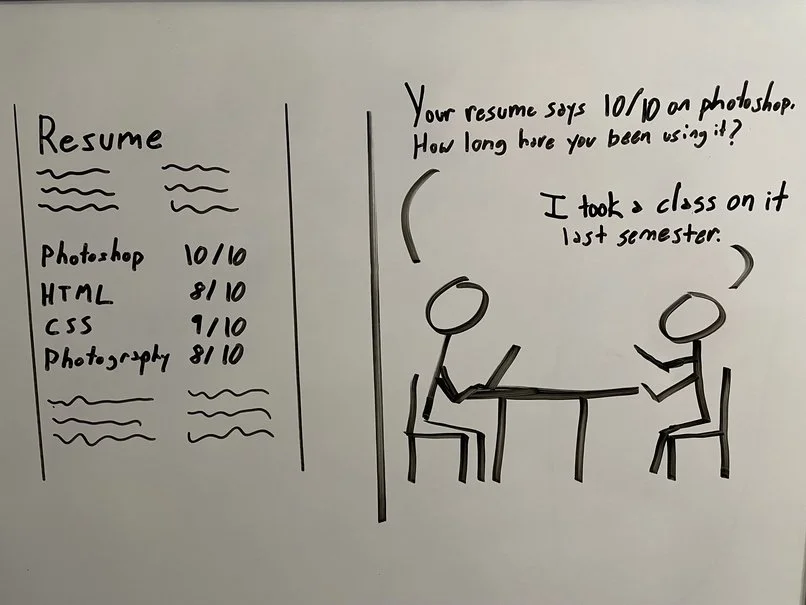 Resume
Photoshop 10/10
HTML 8/10
CSS 9/10
Photography 8/10
Your resume says 10/10 on photoshop.
How long have you been using it?
I took a class on it
last semester.